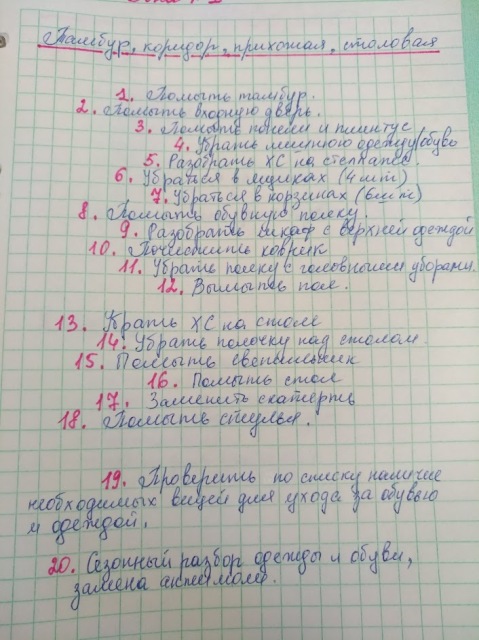 Тамбур, коридор, прихожая, столовая
1. Помыть тамбур.
2. Помыть входную дверь.
3. Помыть панели и плинтус
4. Убрать лишнюю одежду/обувь
5. Разобрать ХС на стеллаже.
6. Убраться в ящиках (4 шт)
7. Убраться в корзинах (6 шт)
8. Помыть обувную полку.
9. Разобрать шкаф с верхней одеждой
10. Почистить коврик
11. Убрать полку с головными уборами.
12. Вымыть пол.
13. Убрать ХС на столе
14. Убрать полочку над столом.
15. Помыть светильник
16. Помыть стол
17. Заменить скатерть
18. Помыть стулья.
19. Проверить по списку наличие
необходимых вещей для ухода за обувью
и одеждой.
20. Сезонный разбор одежды и обуви,
замена антимоли.